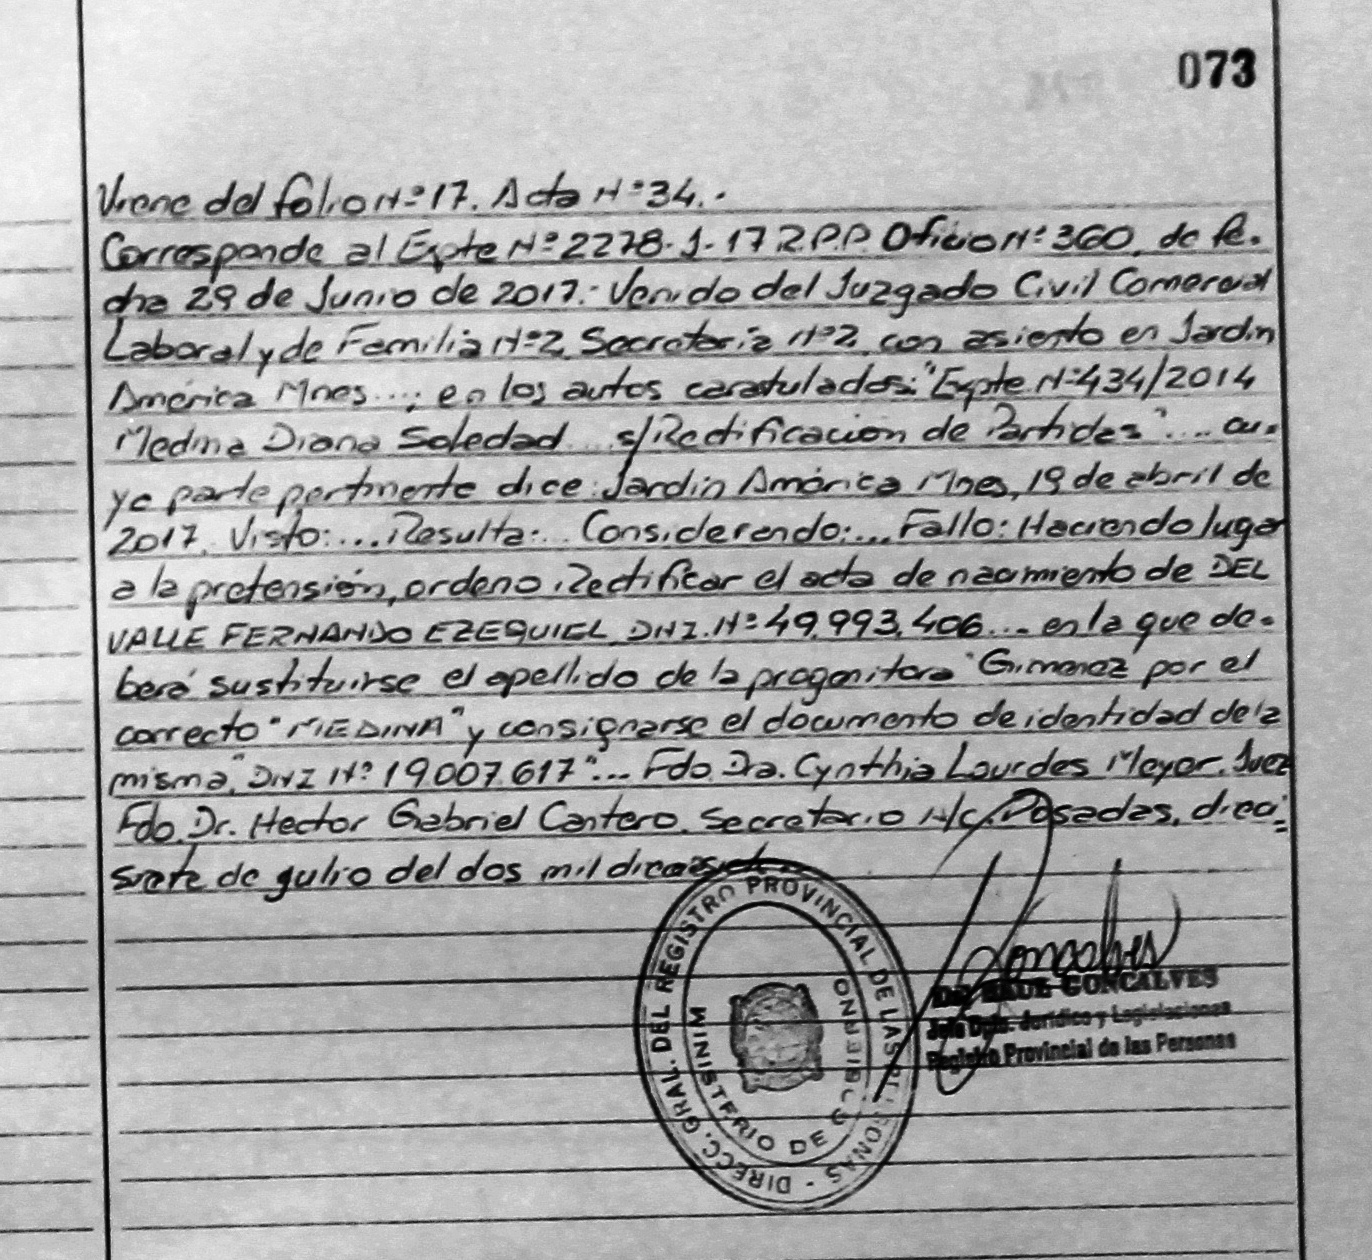 073
Viene del folio N° 17. Acta N° 34.-
Corresponde al Expte N° 2278-J-17 R.P.P. Oficio N° 360, de fe-
cha 29 de Junio de 2017.- Venido del Juzgado Civil Comercial
Laboral y de Familia N° 2, Secretaria N° 2, con asiento en Jardín
América Mnes...; en los autos caratulados: "Expte. N° 434/2014
Medina Diana Soledad... s/Rectificación de Partidas".... cu-
ya parte pertinente dice: Jardín América Mnes, 19 de abril de
2017. Visto:... Resulta:... Considerando:... Fallo: Haciendo lugar
a la pretensión, ordeno Rectificar el acta de nacimiento de DEL
VALLE FERNANDO EZEQUIEL, DNI. N° 49.993.406.... en la que de-
berá sustituirse el apellido de la progenitora "Gimenez por el
correcto "MEDINA" y consignarse el documento de identidad de la
misma, "DNI N° 19.007.617"... Fdo. Dra. Cynthia Lourdes Meyer. Juez
Fdo. Dr. Hector Gabriel Cantero. Secretario A/c. Posadas, dieci-
siete de gulio del dos mil
DIRECC. GRAL. DEL REGISTRO PROVINCIAL DE LAS PERSONAS -
MINISTERIO DE GOBIERNO
Goncalves
GONCALVES
Jefe Dpto. Jurídico y Legislaciones
Registro Provincial de las Personas